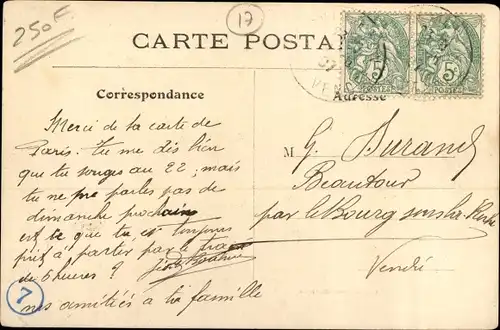 250F
17
CARTE POSTA
5c
5c
POSTES
POSTES
Correspondance
Adresse
Merci de la carte de
Paris. Tu me dis bien
que tu songes au 22, mais
tu ne me parles pas de
dimanche prochain
est ce que tu es toujours
prêt à partir par le
de 6 heures ?
mes amitiés à ta famille
M G. Durand
Beautour
par le Bourg sous la
Vendée
7